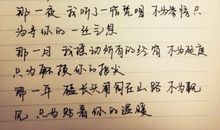 那一夜 我听了一宿梵唱 不为参悟 只
为寻你的一丝气息
那一月 我转动所有的经筒 不为超度
只为触摸你的指尖
那一年 磕长头匍匐在山路 不为觐
见 只为贴着你的温暖